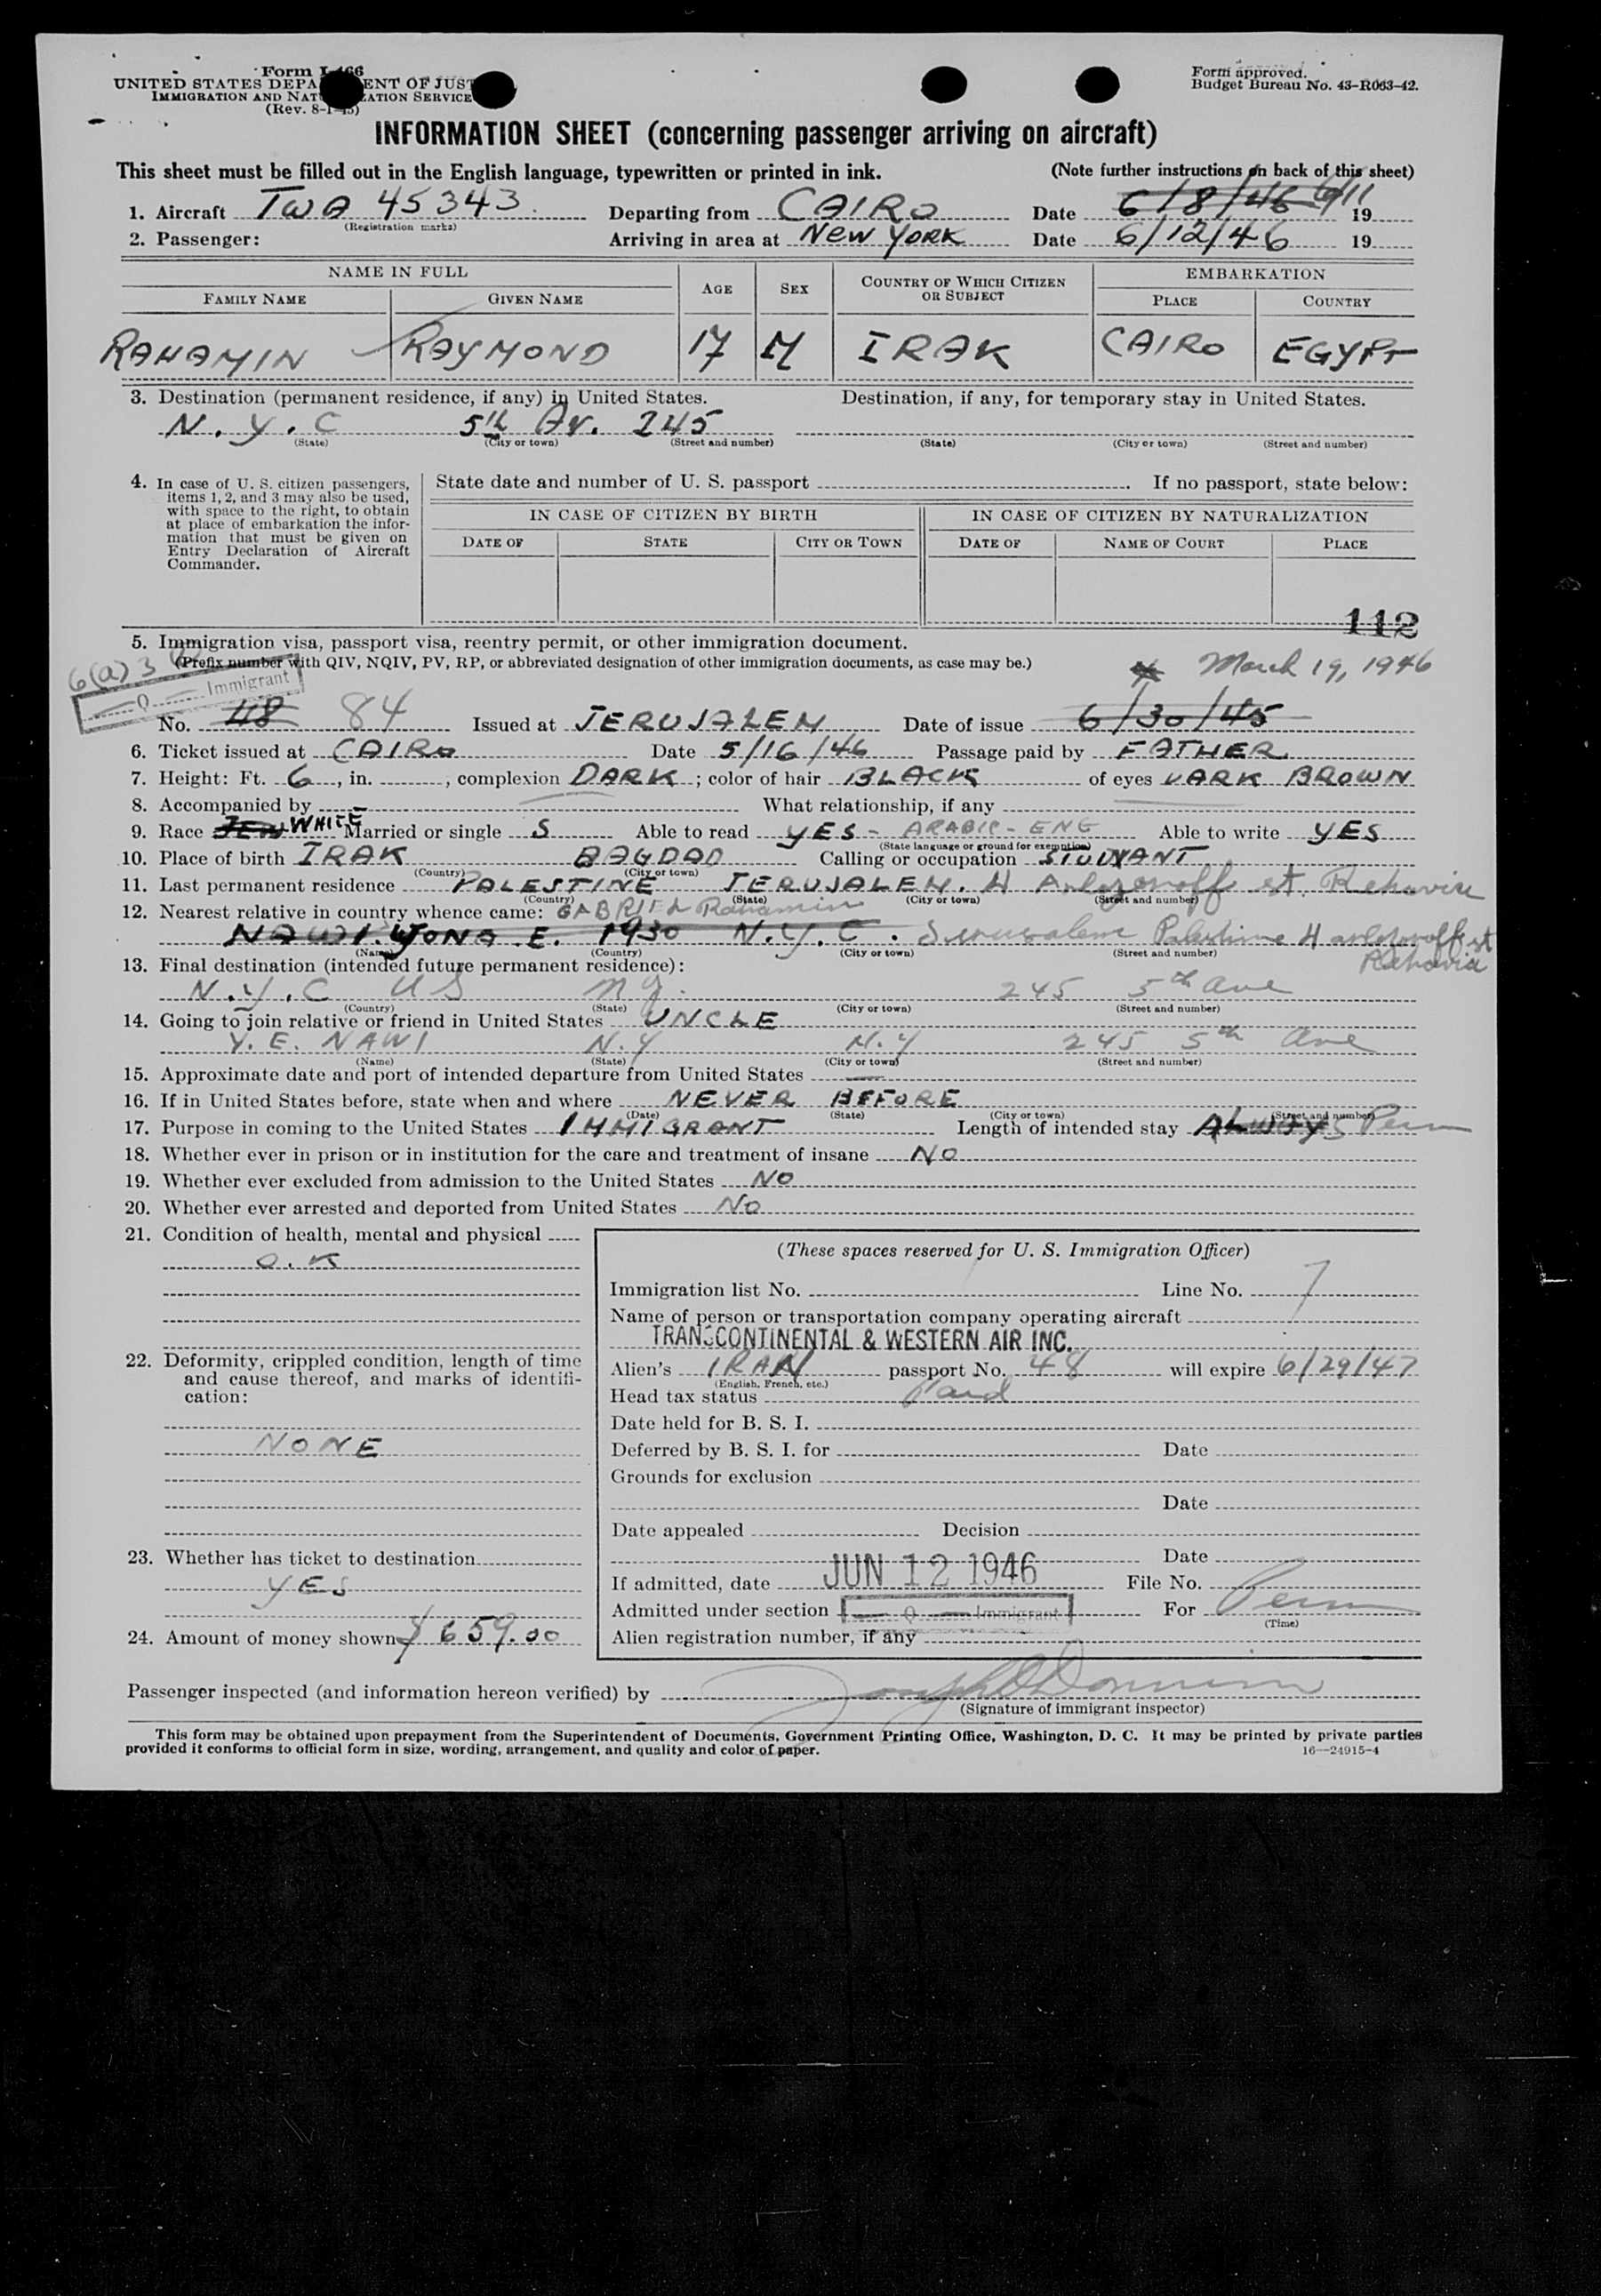 Form I-466
UNITED STATES DEPARTMENT OF JUSTICE
IMMIGRATION AND NATURALIZATION SERVICE
(Rev. 8-1-45)
Form approved.
Budget Bureau No. 43-R063-42.
INFORMATION SHEET (concerning passenger arriving on aircraft)
This sheet must be filled out in the English language, typewritten or printed in ink. (Note further instructions on back of this sheet)
1. Aircraft TWA 45343 Departing from CAIRO Date 6/8/46 6/11 19
(Registration marks)
2. Passenger: Arriving in area at NEW YORK Date 6/12/46 19
NAME IN FULL AGE SEX COUNTRY OF WHICH CITIZEN OR SUBJECT EMBARKATION
FAMILY NAME GIVEN NAME PLACE COUNTRY
RAHAMIN RAYMOND 17 M IRAK CAIRO EGYPT
3. Destination (permanent residence, if any) in United States. Destination, if any, for temporary stay in United States.
N.Y.C 5th Av. 245
(State) (City or town) (Street and number) (State) (City or town) (Street and number)
4. In case of U. S. citizen passengers, items 1, 2, and 3 may also be used, with space to the right, to obtain at place of embarkation the information that must be given on Entry Declaration of Aircraft Commander.
State date and number of U. S. passport . If no passport, state below:
IN CASE OF CITIZEN BY BIRTH IN CASE OF CITIZEN BY NATURALIZATION
DATE OF STATE CITY OR TOWN DATE OF NAME OF COURT PLACE
112
5. Immigration visa, passport visa, reentry permit, or other immigration document.
(Prefix number with QIV, NQIV, PV, RP, or abbreviated designation of other immigration documents, as case may be.)
6(a)3 March 19, 1946
Q Immigrant
No. 48 84 Issued at JERUSALEM Date of issue 6/30/45
6. Ticket issued at CAIRO Date 5/16/46 Passage paid by FATHER
7. Height: Ft. 6, in. , complexion DARK; color of hair BLACK of eyes DARK BROWN
8. Accompanied by What relationship, if any
9. Race JEW WHITE Married or single S Able to read YES - ARABIC - ENG Able to write YES
(State language or ground for exemption)
10. Place of birth IRAK BAGDAD Calling or occupation STUDANT
(Country) (City or town)
11. Last permanent residence PALESTINE JERUSALEM. 4 Arlozoroff st. Rehavia
(Country) (State) (City or town) (Street and number)
12. Nearest relative in country whence came: GABRIEL Rahamin
NAWI. YONA. E. 1930 N.Y.C. Jerusalem Palestine 4 arlozoroff st
Rehavia
(Name) (Country) (City or town) (Street and number)
13. Final destination (intended future permanent residence):
N.Y.C US N.Y. 245 5th Ave
(Country) (State) (City or town) (Street and number)
14. Going to join relative or friend in United States UNCLE
Y. E. NAWI N.Y N.Y 245 5th Ave
(Name) (State) (City or town) (Street and number)
15. Approximate date and port of intended departure from United States —
16. If in United States before, state when and where NEVER BEFORE
(Date) (State) (City or town) (Street and number)
17. Purpose in coming to the United States IMMIGRANT Length of intended stay ALWAYS Perm
18. Whether ever in prison or in institution for the care and treatment of insane NO
19. Whether ever excluded from admission to the United States NO
20. Whether ever arrested and deported from United States NO
21. Condition of health, mental and physical
O.K
22. Deformity, crippled condition, length of time and cause thereof, and marks of identification:
NONE
23. Whether has ticket to destination
YES
24. Amount of money shown $659.00
(These spaces reserved for U. S. Immigration Officer)
Immigration list No. Line No. 7
Name of person or transportation company operating aircraft
TRANSCONTINENTAL & WESTERN AIR INC.
Alien's IRAK passport No. 48 will expire 6/29/47
(English, French, etc.)
Head tax status Paid
Date held for B. S. I.
Deferred by B. S. I. for Date
Grounds for exclusion
Date
Date appealed Decision
Date
If admitted, date JUN 12 1946 File No.
Admitted under section Q Immigrant For Perm
(Time)
Alien registration number, if any
Passenger inspected (and information hereon verified) by
(Signature of immigrant inspector)
This form may be obtained upon prepayment from the Superintendent of Documents, Government Printing Office, Washington, D. C. It may be printed by private parties
provided it conforms to official form in size, wording, arrangement, and quality and color of paper. 16—24915-4